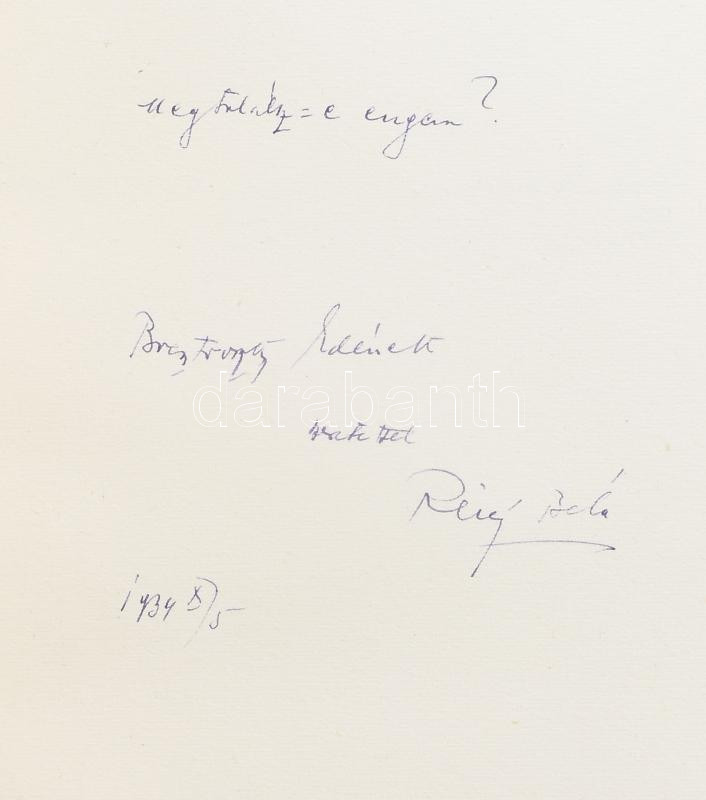 Megtalálsz=e engem?
Bresztovszky Edének
darabanth
szeretettel
Révy Béla
1934 X/5